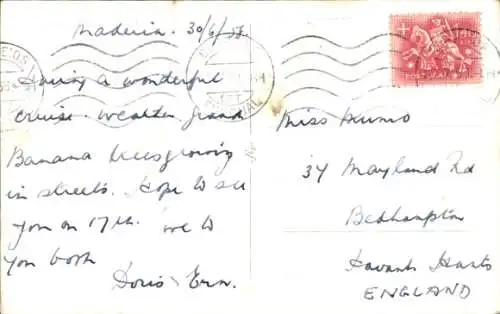 Madeira. 30/6/57
Having a wonderful
cruise. weather grand
Banana trees growing
in streets. Hope to see
you on 17th. We to
you both
Doris Ern.
Miss Munro
34 Mayland Rd
Bedhampton
Havant Hants
ENGLAND
PORTUGAL